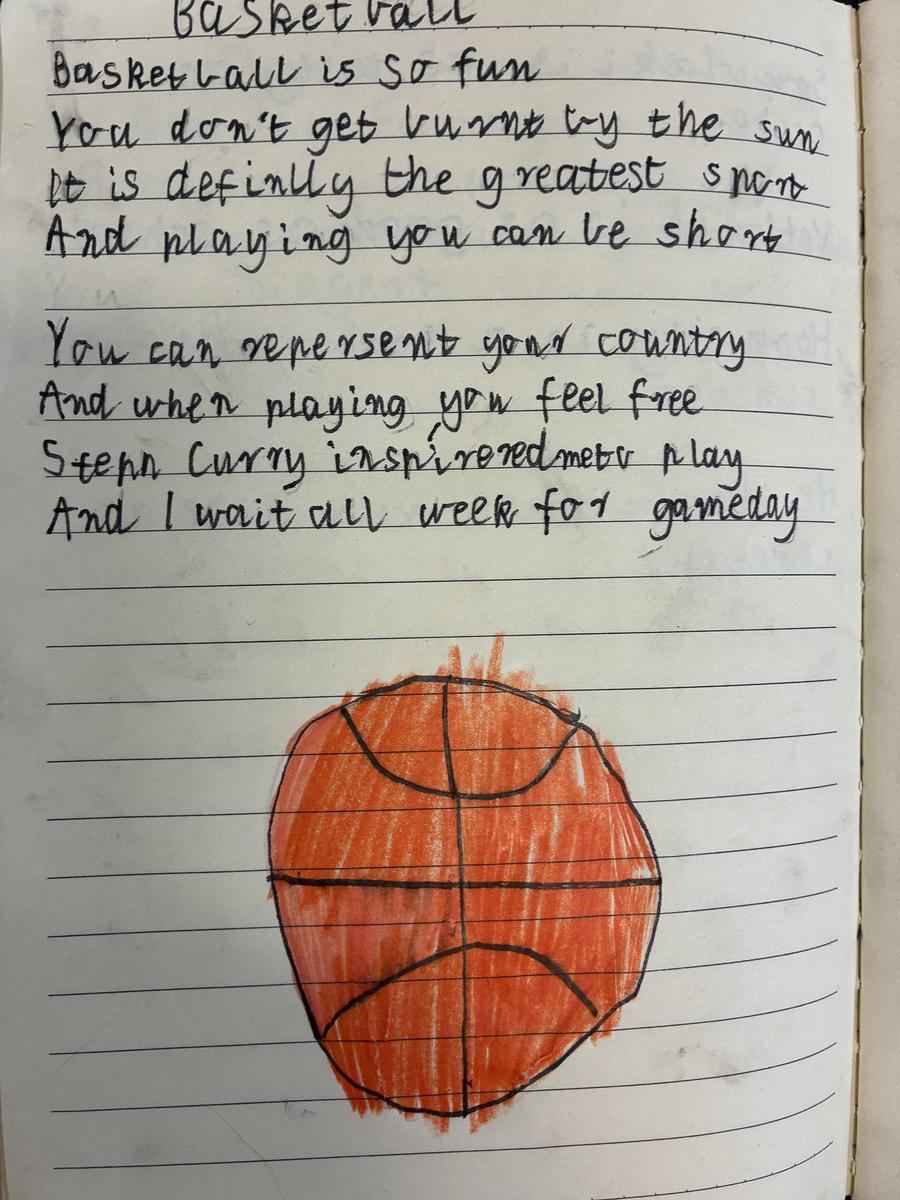 Basketball
Basketball is so fun
You don't get burnt by the sun
It is definlly the greatest sport
And playing you can be short
You can repersent your country
And when playing you feel free
Steph Curry inspirered me to play
And I wait all week for gameday